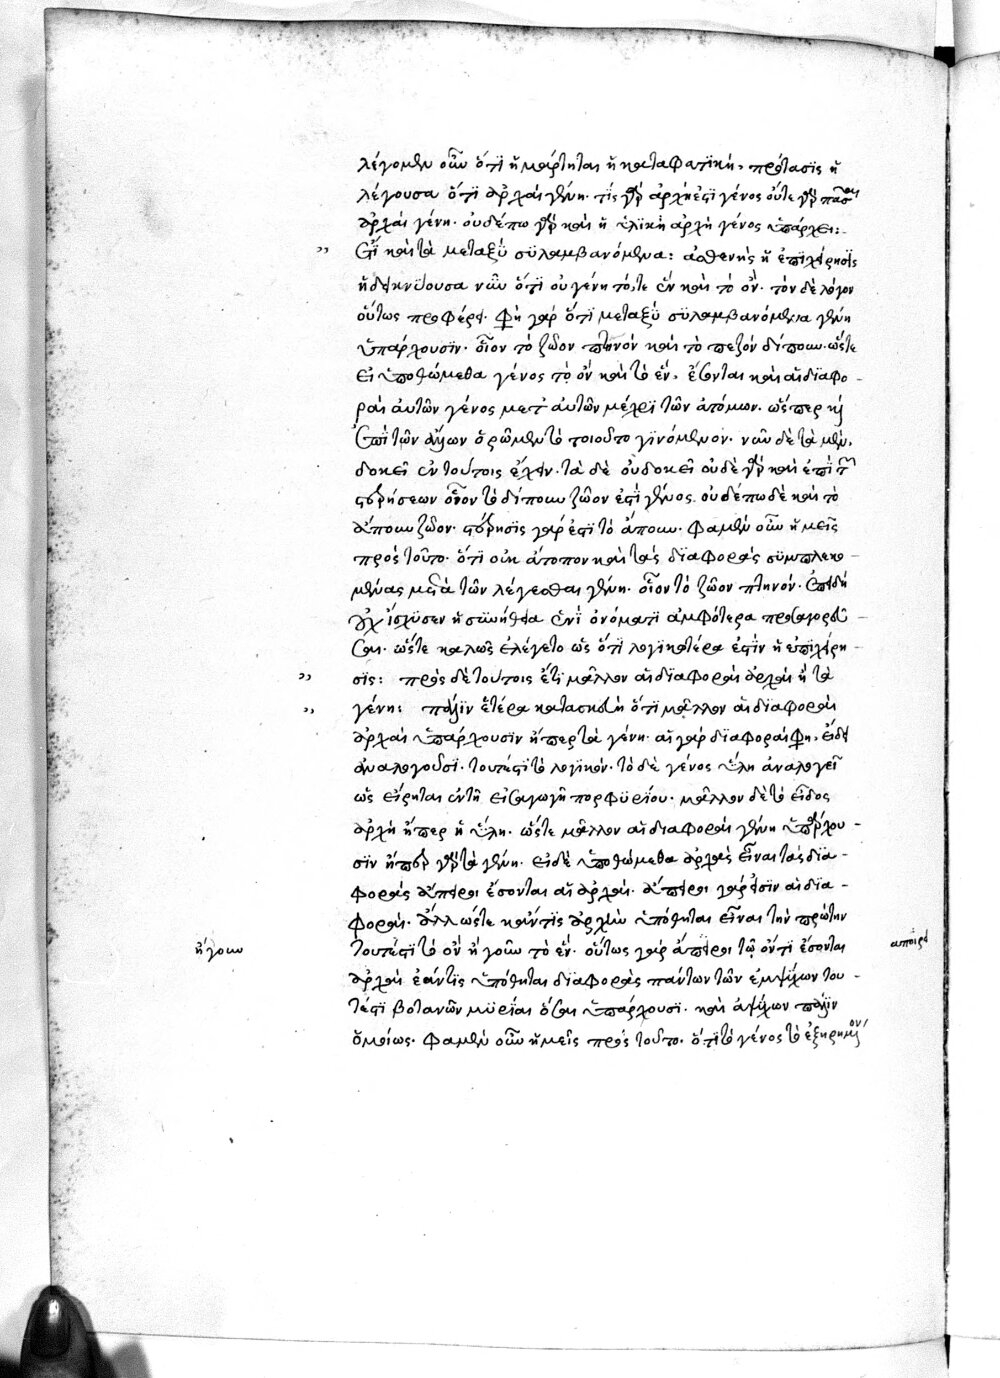 λέγομεν οὖν ὅτι ἡμάρτηται ἡ καταφατικὴ πρότασις ἡ
λέγουσα ὅτι ἀρχαὶ γένη. τίς γὰρ ἀρχὴ ἐστὶ γένος οὔτε γὰρ πᾶσαι
ἀρχαὶ γένη. οὐδέπω γὰρ καὶ ἡ ὑλικὴ ἀρχὴ γένος ὑπάρχει:
,, Ἔτι καὶ τὰ μεταξὺ συλαμβανόμενα: ἀσθενὴς ἡ ἐπιχείρησις
ἡ δεικνύουσα νῦν ὅτι οὐ γένη τό,τε ἓν καὶ τὸ ὄν. τὸν δὲ λόγον
οὕτως προφέρει. φησὶ γὰρ ὅτι μεταξὺ συλαμβανόμενα γένη
ὑπάρχουσιν. οἷον τὸ ζῶον πτηνὸν καὶ τὸ πεζὸν δίπουν. ὥστε
εἰ ὑποθώμεθα γένος τὸ ὂν καὶ τὸ ἓν, ἔσονται καὶ αἱ διαφο-
ραὶ αὐτῶν γένος μετ' αὐτῶν μέχρι τῶν ἀτόμων. ὥσπερ καὶ
ἐπὶ τῶν ἄλλων ὁρῶμεν τὸ τοιοῦτο γινόμενον. νῦν δὲ τὰ μὲν,
δοκεῖ ἐν τούτοις ἔχειν. τὰ δὲ οὐ δοκεῖ οὐδὲ γὰρ καὶ ἐπὶ τῆς
στερήσεων οἷον τὸ δίπουν ζῶον ἐστὶ γένος. οὐδέπω δὲ καὶ τὸ
ἄπουν ζῶον. στέρησις γάρ ἐστι τὸ ἄπουν. φαμὲν οὖν ἡμεῖς
πρὸς τοῦτο. ὅτι οὐκ ἄτοπον καὶ τὰς διαφορὰς συμπλεκο-
μένας μετὰ τῶν λέγεσθαι γένη. οἷον τὸ ζῶον πτηνόν. ἐπειδὴ
οὐχ ἴσχυσεν ἡ συνήθεια ἑνὶ ὀνόματι ἀμφότερα προσαγορεῦ-
σαι. ὥστε καλῶς ἐλέγετο ὡς ὅτι λογικωτέρα ἐστὶν ἡ ἐπιχείρη-
,, σις: πρὸς δὲ τούτοις ἔτι μᾶλλον αἱ διαφοραὶ ἀρχαὶ ἢ τὰ
,, γένη: πάλιν ἑτέρα κατασκευὴ ὅτι μᾶλλον αἱ διαφοραὶ
ἀρχαὶ ὑπάρχουσιν ἤπερ τὰ γένη. αἱ γὰρ διαφοραὶ φησὶν, εἴδει
ἀναλογοῦσι. τουτέστι τὸ λογικόν. τὸ δὲ γένος ὕλη ἀναλογεῖ
ὡς εἴρηται ἐν τῇ εἰσαγωγῇ πορφυρίου. μᾶλλον δὲ τὸ εἶδος
ἀρχὴ ἤπερ ἡ ὕλη. ὥστε μᾶλλον αἱ διαφοραὶ γένη ὑπάρχου-
σιν ἤπερ γὰρ τὰ γένη. εἰ δὲ ὑποθώμεθα ἀρχὰς εἶναι τὰς δια-
φορὰς ἄπειροι ἔσονται αἱ ἀρχαί. ἄπειροι γάρ εἰσιν αἱ δια-
φοραί. ἄλλως τε κἄν τις ἀρχὴν ὑπόθηται εἶναι τὴν πρώτην
ἤγουν τουτέστι τὸ ὂν ἤγουν τὸ ἕν. οὕτως γὰρ ἄπειροι τῷ ὄντι ἔσονται ἄπειροι
ἀρχαὶ ἐάν τις ὑπόθηται διαφορὰς πάντων τῶν ἐμψύχων του-
τέστι βοτανῶν μυρίαι ὅσαι ὑπάρχουσι. καὶ ἀψύχων πάλιν
ὁμοίως. φαμὲν οὖν ἡμεῖς πρὸς τοῦτο. ὅτι τὸ γένος τὸ ἐξηρημένον